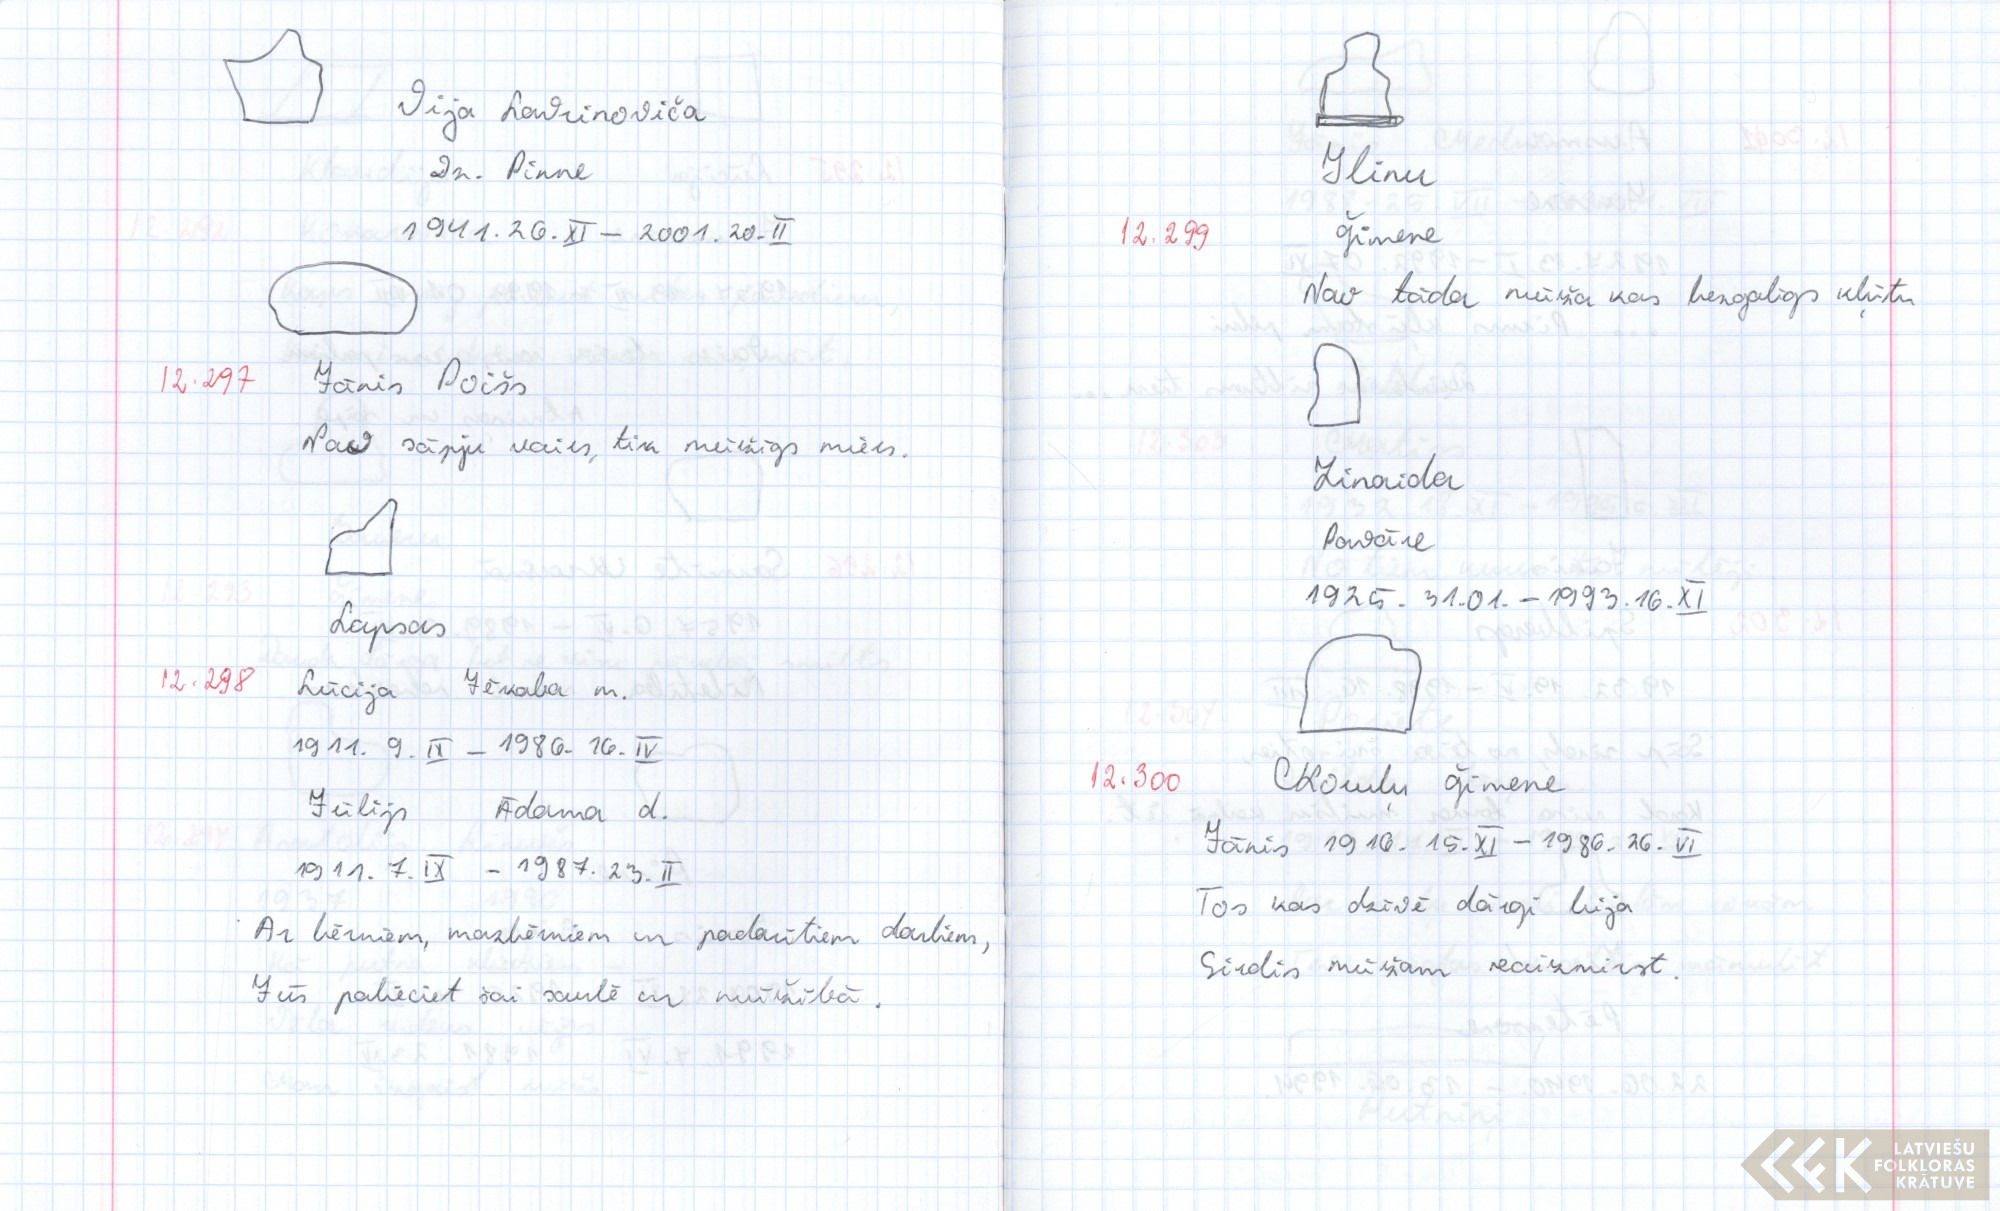 Vija Lavrinoviča
Dz. Pinne
1941. 26. XI – 2001. 20. II
12.297 Jānis Poišs
Nav sāpju vairs, tik mūžīgs miers.
Lapsas
12.298 Lūcija Jēkaba m.
1911. 9. IX – 1986. 16. IV
Jūlijs Ādama d.
1911. 7. IX – 1987. 23. II
Ar bērniem, mazbērniem un padarītiem darbiem,
Jūs palieciet šai saulē un mūžībā.
Ilinu
12.299 ģimene
Nav tāda mūža kas bezgalīgs kļūtu
Zinaida
Pavāre
1925. 31.01. – 1993. 16. XI
12.300 ģimene
Jānis 1916. 15. XI – 1986. 26. VI
Tos kas dzīvē dārgi bija
Sirdis mūžam neaizmirst.
LATVIEŠU
FOLKLORAS
KRĀTUVE